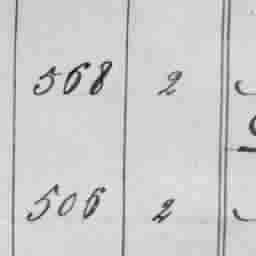 568 2
506 2